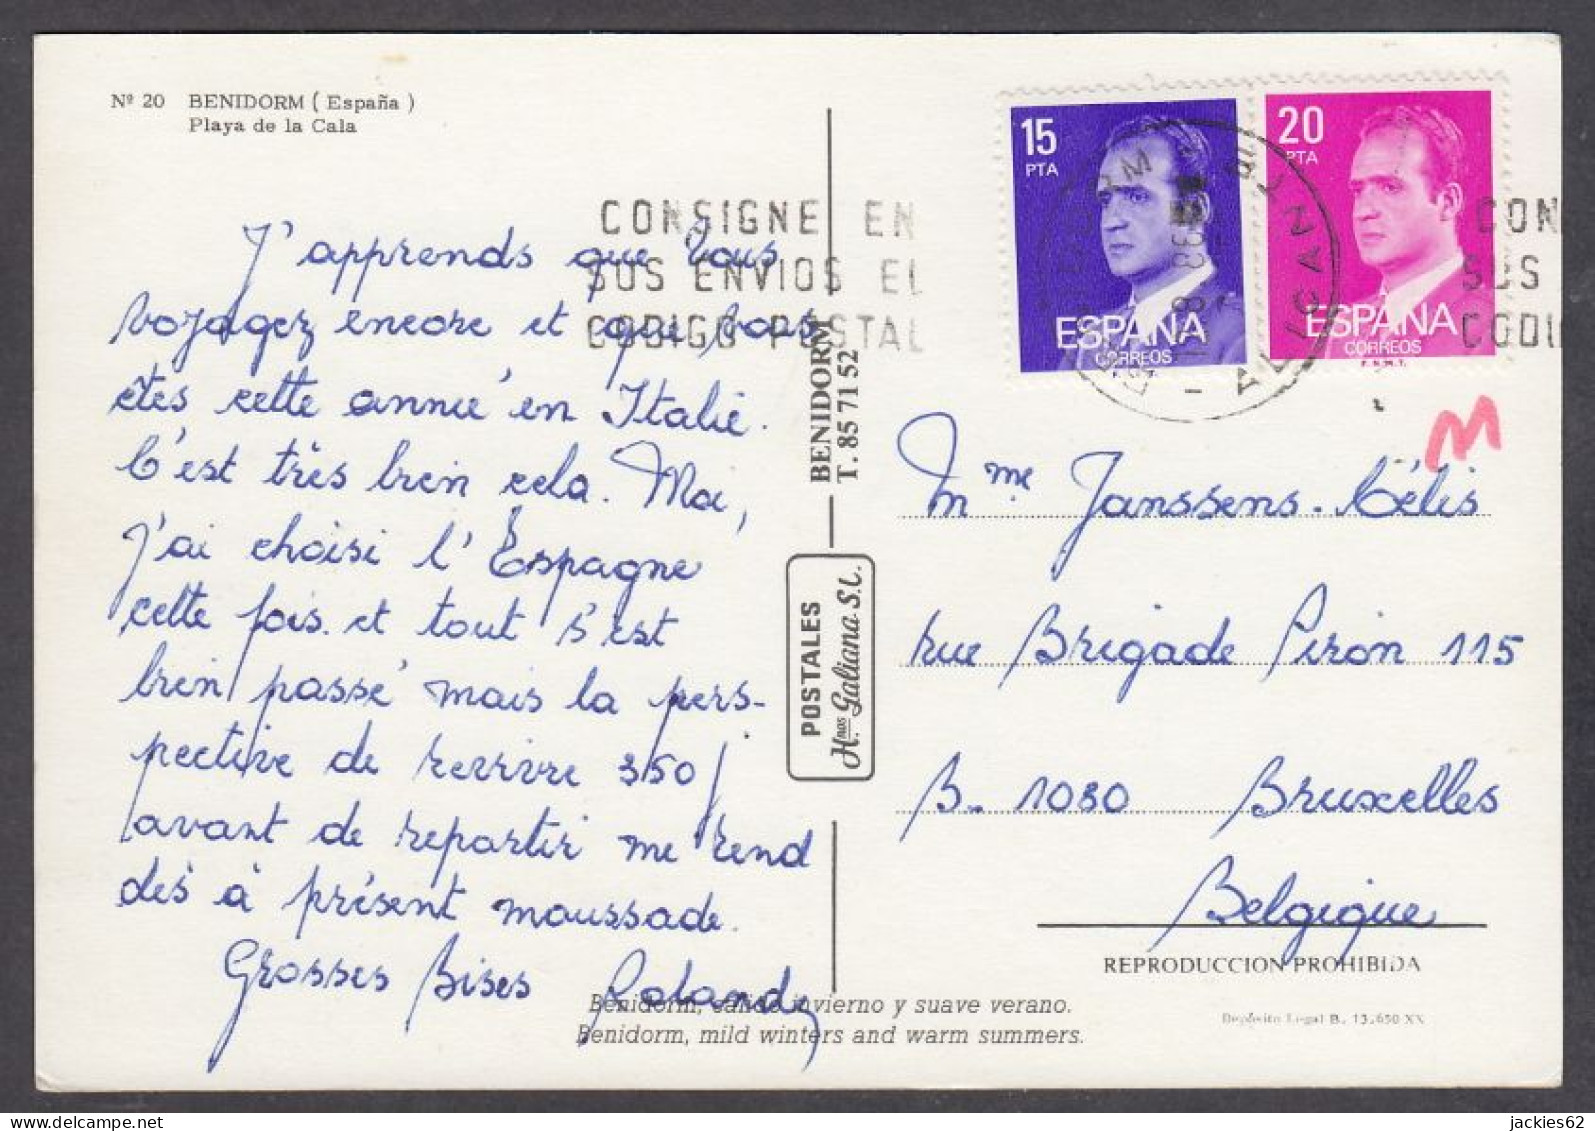 Nº 20 BENIDORM ( España )
Playa de la Cala
J'apprends que vous
voyagez encore et que vous
êtes cette année en Italie.
C'est très bien cela. Moi,
j'ai choisi l'Espagne
cette fois et tout s'est
bien passé mais la pers-
pective de revivre 350 j
avant de repartir me rend
dès à présent moussade.
Grosses Bises Rolande
CONSIGNE EN
SUS ENVIOS EL
CODIGO POSTAL
BENIDORM
T. 85 71 52
POSTALES
Hnos. Galiana S.L.
15
PTA
ESPAÑA
CORREOS
F.N.M.T.
20
PTA
ESPAÑA
CORREOS
F.N.M.T.
BENIDORM
ALICANTE
CON
SUS
CODI
M
Mme Janssens-Célis
rue Brigade Piron 115
B. 1080 Bruxelles
Belgique
REPRODUCCION PROHIBIDA
Depósito Legal B. 13.650 XX
Benidorm, cálido invierno y suave verano.
Benidorm, mild winters and warm summers.
jackies62